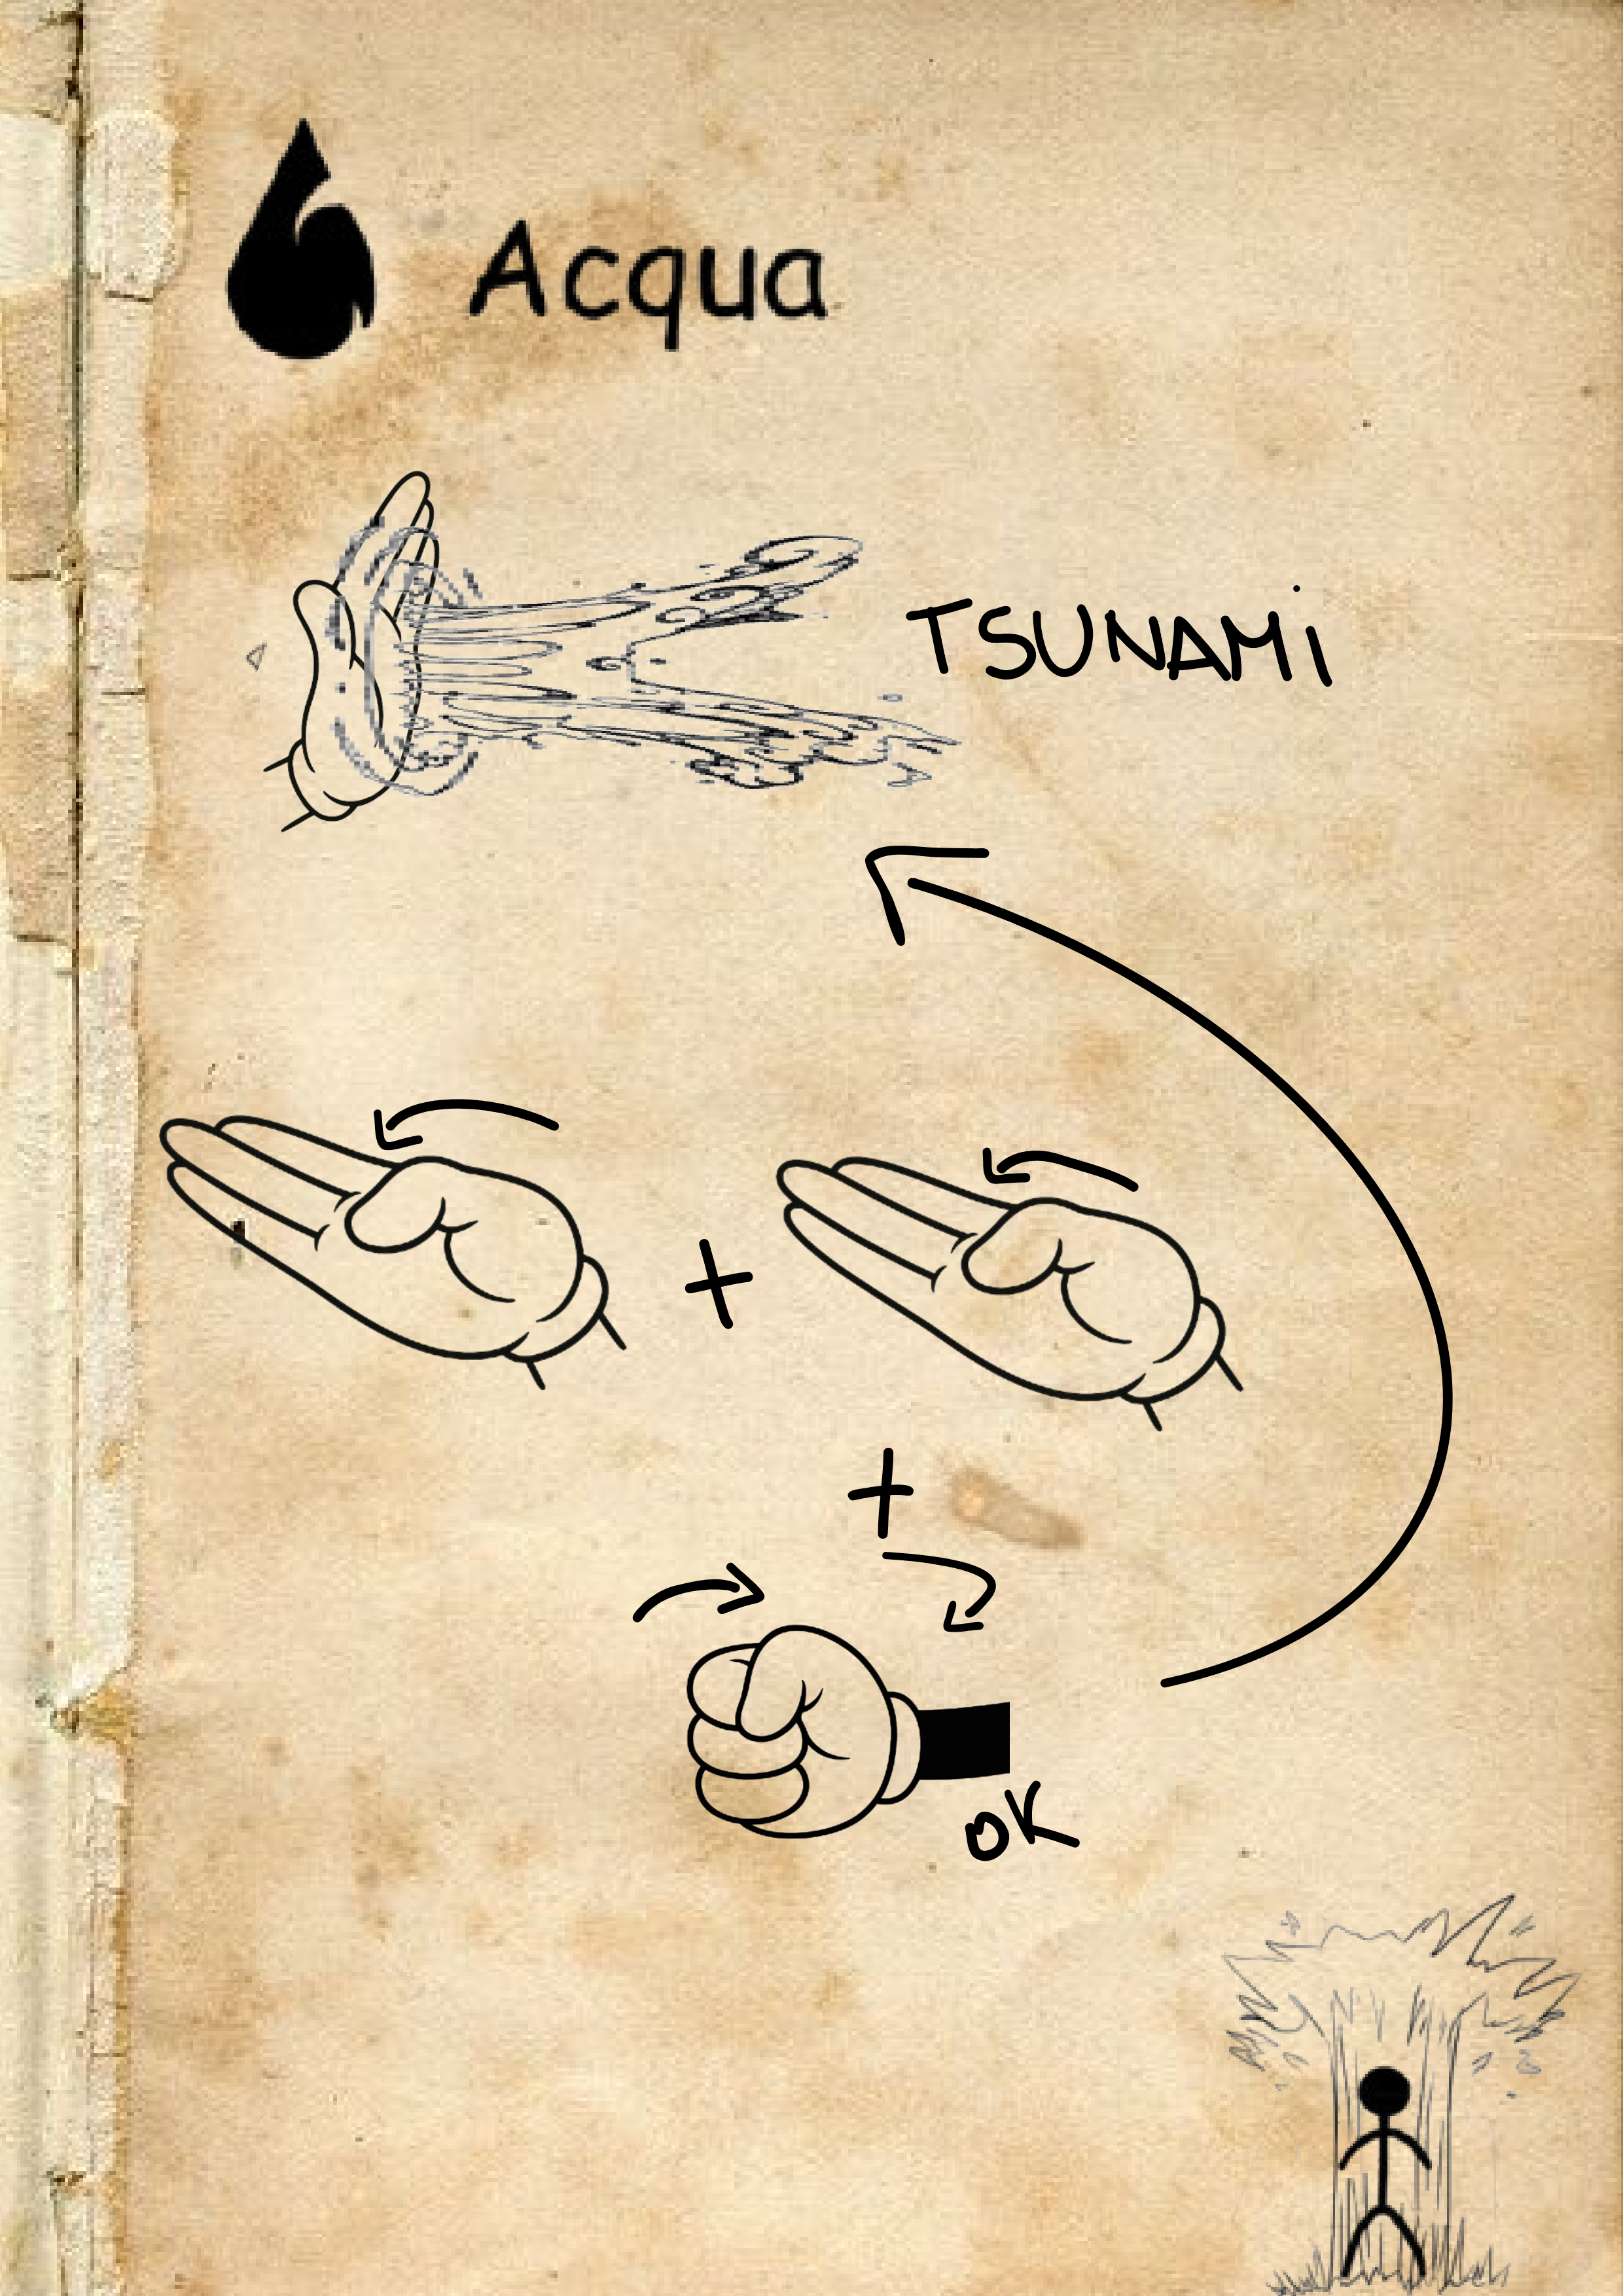 Acqua
TSUNAMi
+
+
OK